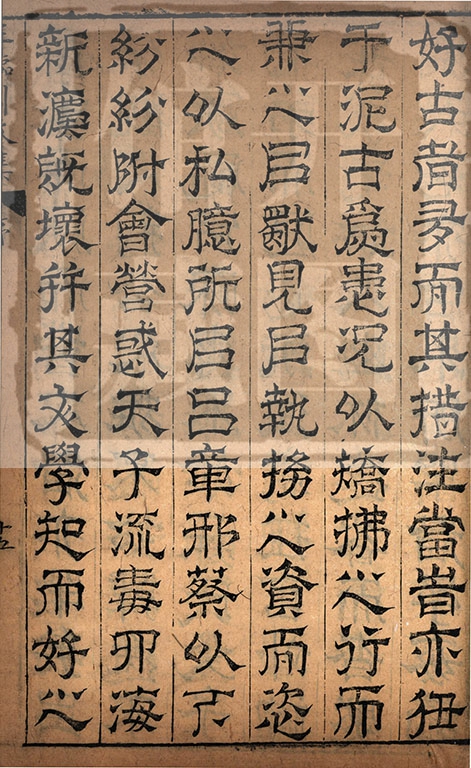 好古多而其措注當旹亦狃
于泥古爲患况以矯拂之行而
兼之㠯獨見㠯執拗之資而恣
之以私臆所㠯吕章邢蔡以下
紛紛附會營惑天子流毒四海
新灋既壞并其文學知而好之
臨川文集
序
十五